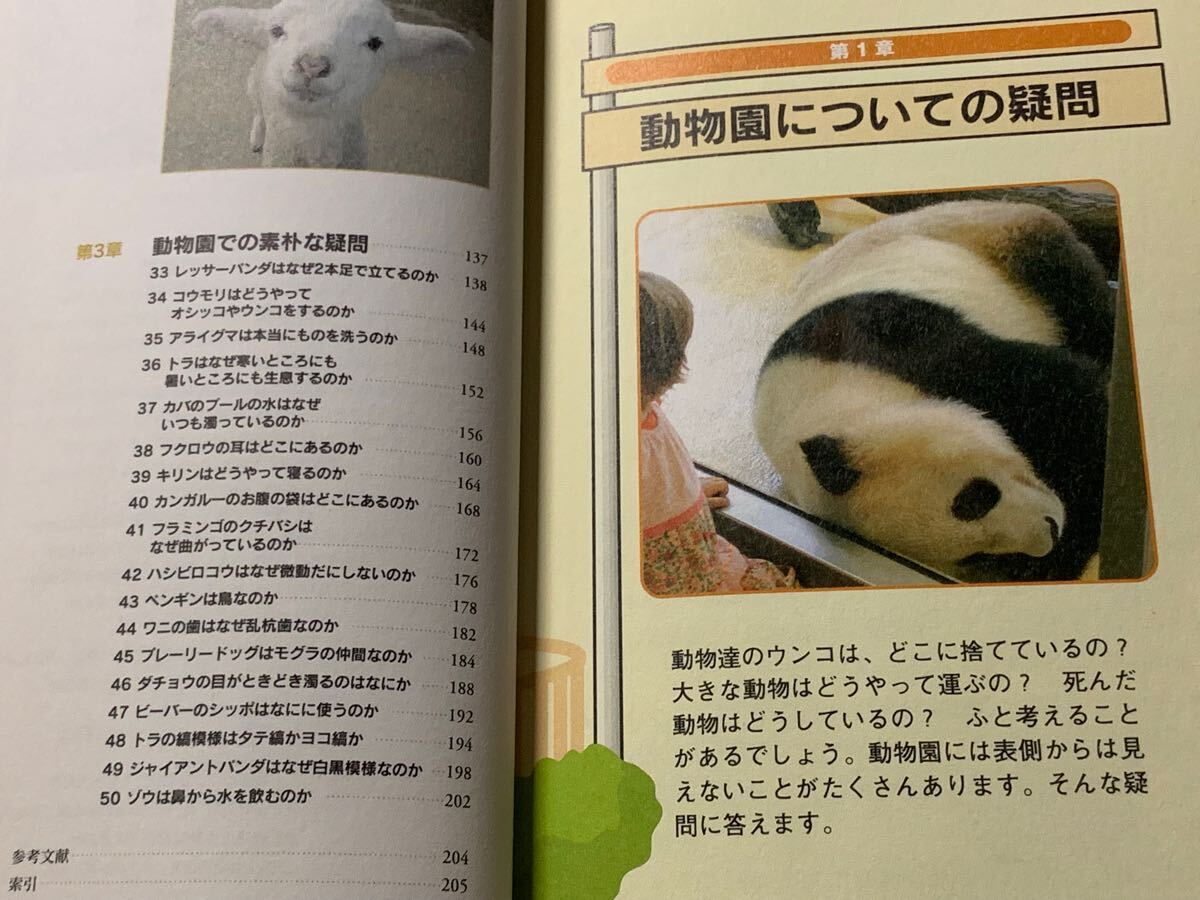 第3章 動物園での素朴な疑問 137
33 レッサーパンダはなぜ2本足で立てるのか 138
34 コウモリはどうやって
オシッコやウンコをするのか 144
35 アライグマは本当にものを洗うのか 148
36 トラはなぜ寒いところにも
暑いところにも生息するのか 152
37 カバのプールの水はなぜ
いつも濁っているのか 156
38 フクロウの耳はどこにあるのか 160
39 キリンはどうやって寝るのか 164
40 カンガルーのお腹の袋はどこにあるのか 168
41 フラミンゴのクチバシは
なぜ曲がっているのか 172
42 ハシビロコウはなぜ微動だにしないのか 176
43 ペンギンは鳥なのか 178
44 ワニの歯はなぜ乱杭歯なのか 182
45 プレーリードッグはモグラの仲間なのか 184
46 ダチョウの目がときどき濁るのはなにか 188
47 ビーバーのシッポはなにに使うのか 192
48 トラの縞模様はタテ縞かヨコ縞か 194
49 ジャイアントパンダはなぜ白黒模様なのか 198
50 ゾウは鼻から水を飲むのか 202
参考文献 204
索引 205
第1章
動物園についての疑問
動物達のウンコは、どこに捨てているの？
大きな動物はどうやって運ぶの？　死んだ
動物はどうしているの？　ふと考えること
があるでしょう。動物園には表側からは見
えないことがたくさんあります。そんな疑
問に答えます。